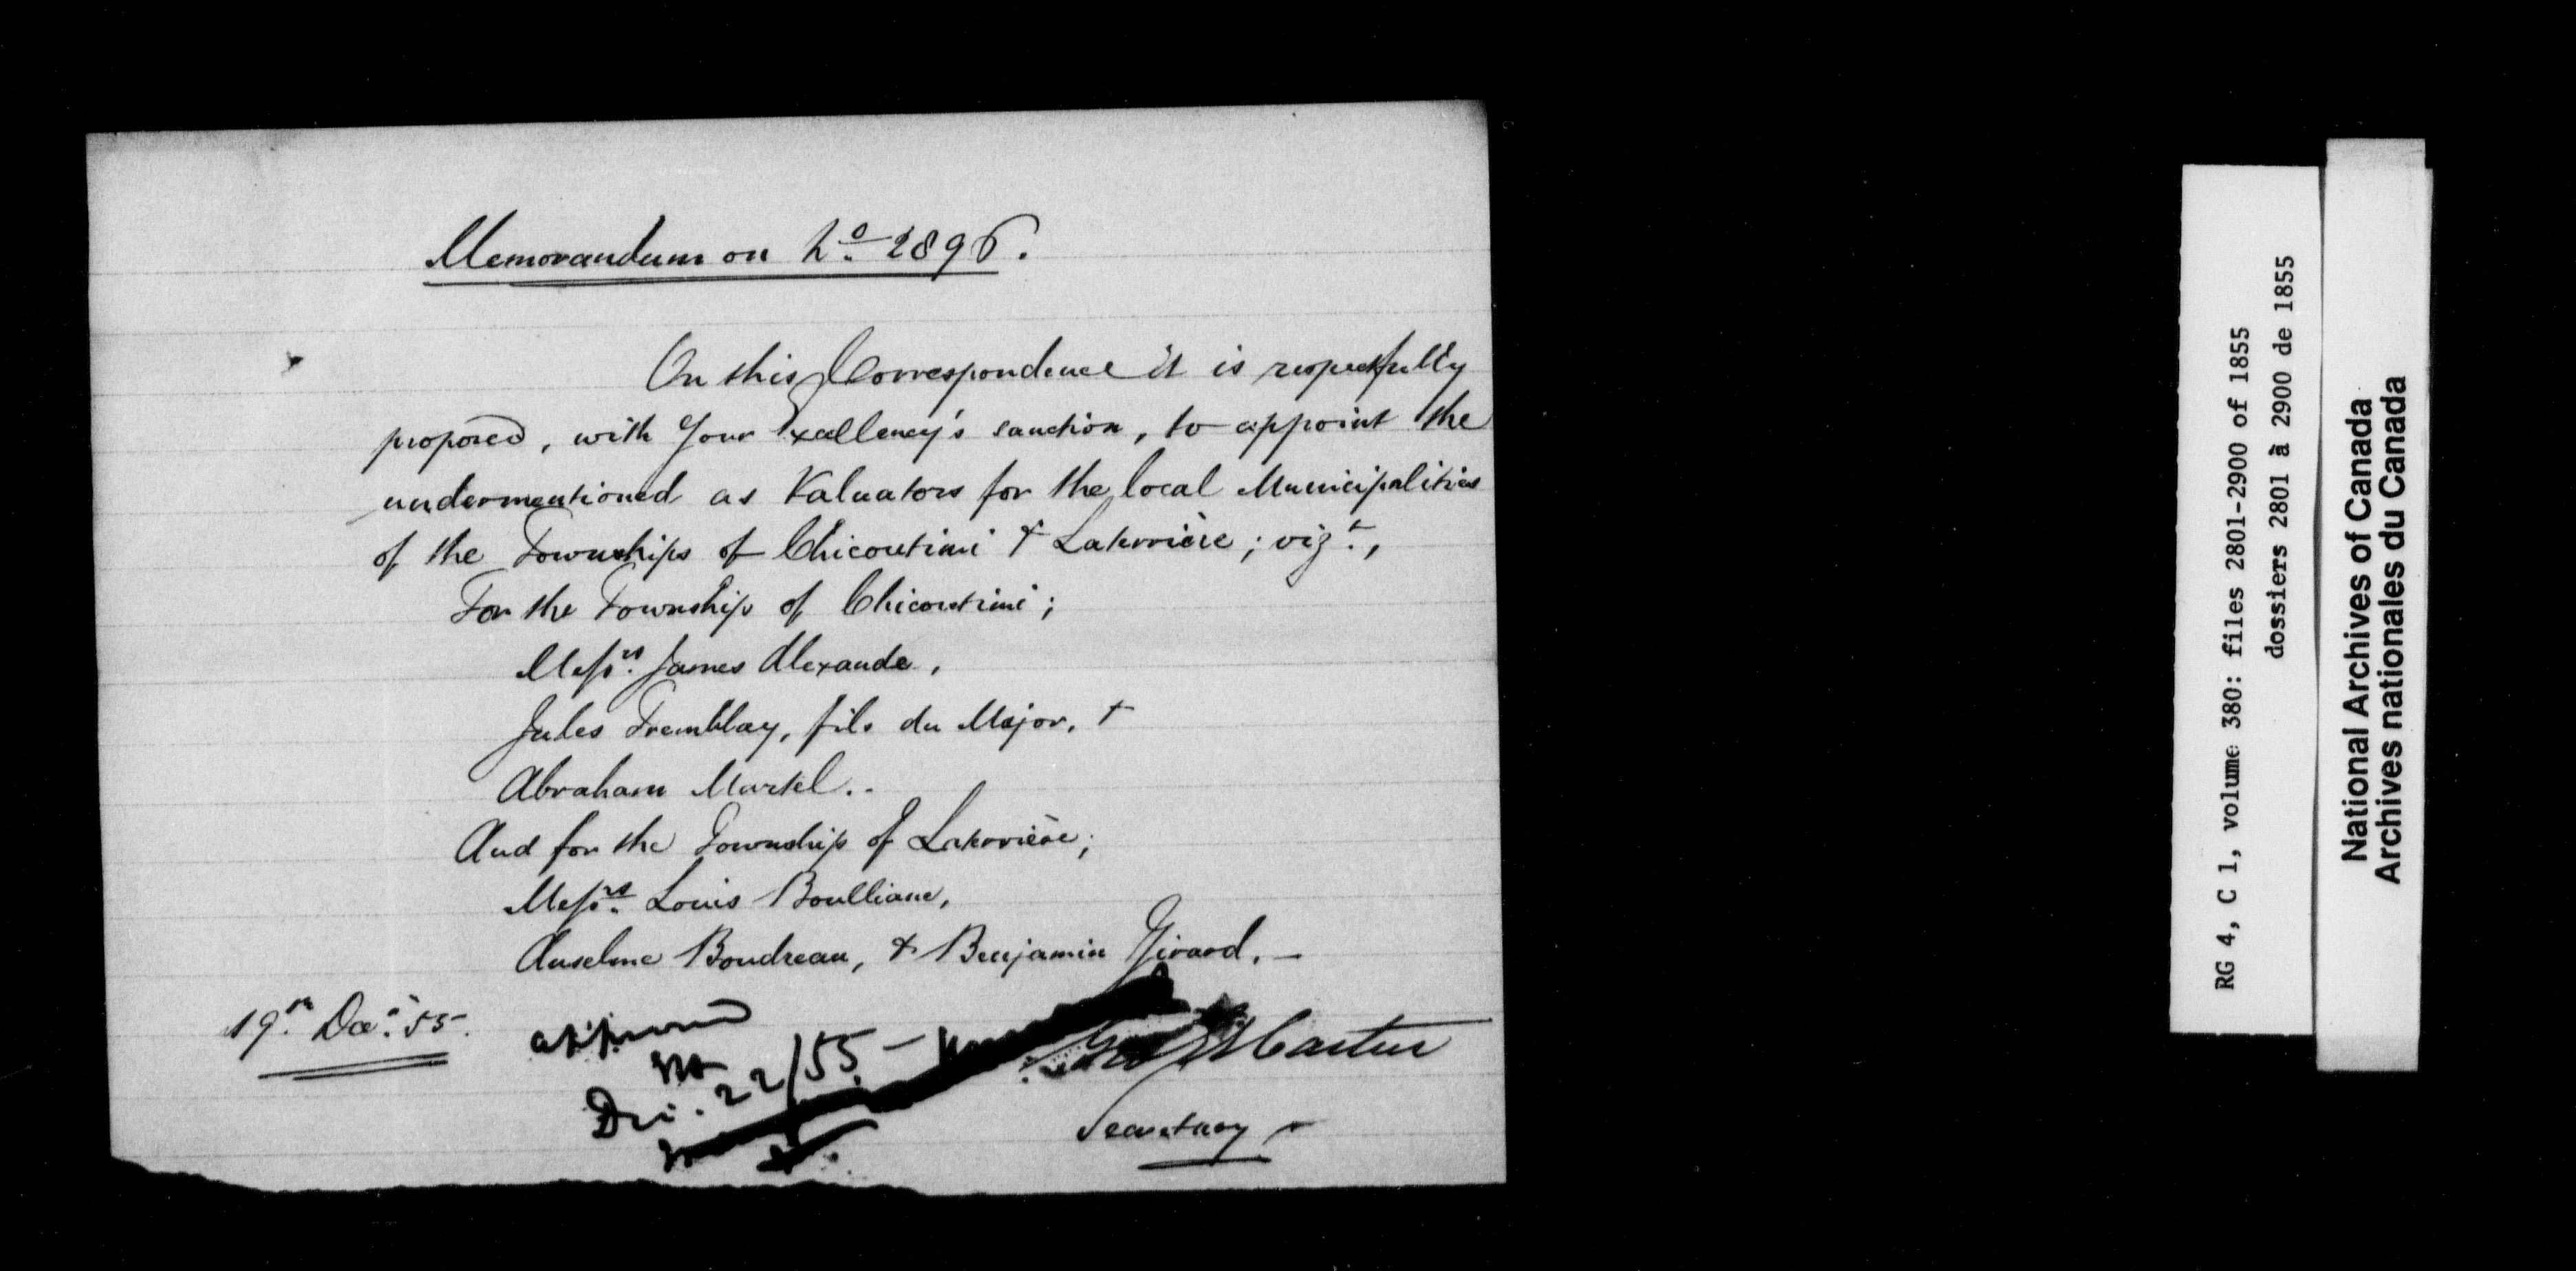 Memorandum on No. 2896.
On this Correspondence it is respectfully
proposed, with Your Excellency's sanction, to appoint the
undermentioned as Valuators for the local Municipalities
of the Townships of Chicoutimi & Laterrière; vizt.,
For the Township of Chicoutimi;
Messrs. James Alexande,
Jules Tremblay, fils du Major, &
Abraham Martel..
And for the Township of Laterrière;
Messrs. Louis Boulliane,
Anselme Boudreau, & Benjamin Girard. —
19th. Dec. 55.
approved
Dec. 22/55. —
Geo. Et. Cartier
Secretary
RG 4, C 1, volume 380: files 2801-2900 of 1855
dossiers 2801 à 2900 de 1855
National Archives of Canada
Archives nationales du Canada